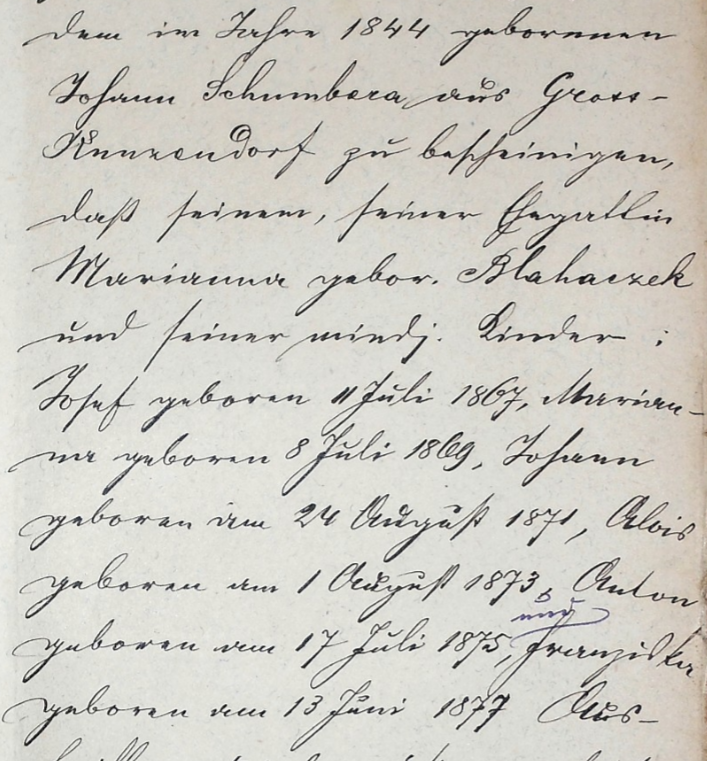 dem im Jahre 1844 geborenen
Johann Schumbera aus Gross-
Kunzendorf zu bescheinigen,
daß seinem, seiner Ehegattin
Marianna gebor. Blahaczek
und seiner mindj. Kinder :
Josef geboren 11 Juli 1867, Marian-
na geboren 8 Juli 1869, Johann
geboren am 24 August 1871, Alois
geboren am 1 August 1873, Anton
und
geboren am 17 Juli 1875, Franziska
geboren am 13 Juni 1877 Aus-